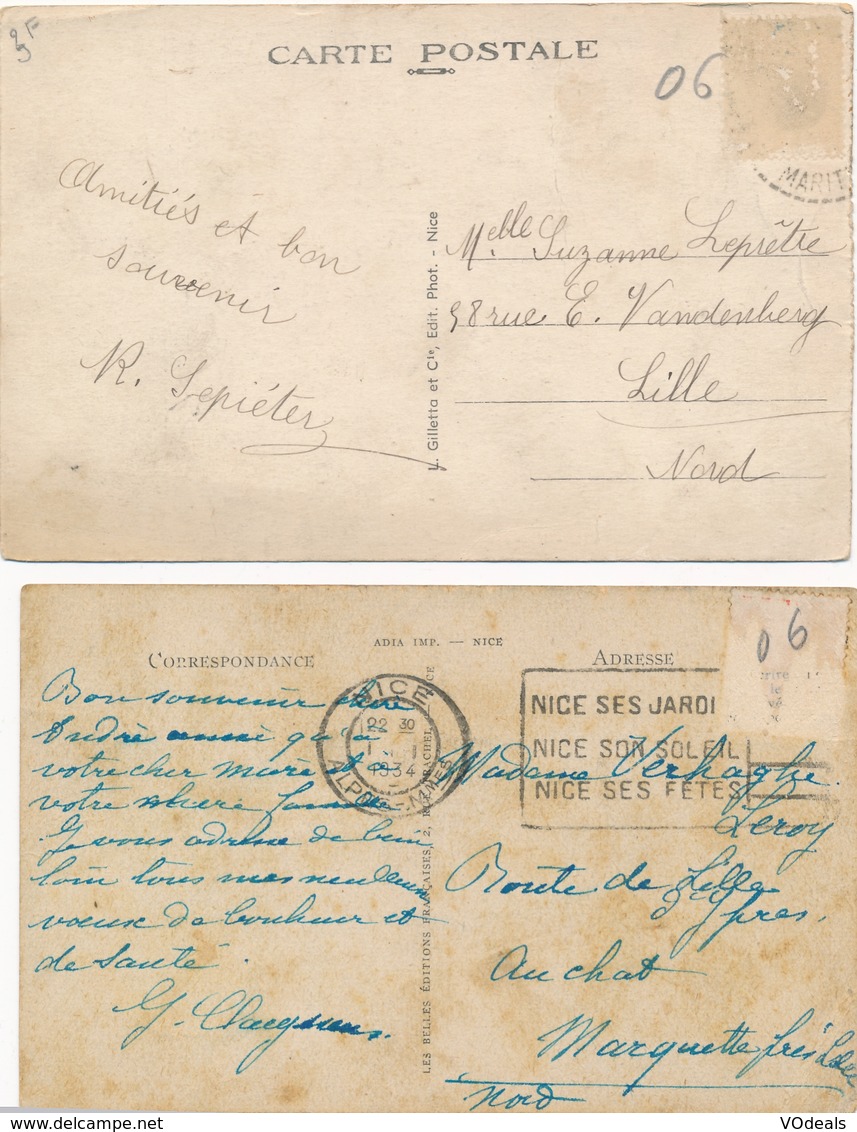 9F
CARTE POSTALE
06
MARIT
Amitiés et bon
souvenir
R. Lepiéter
L. Gilletta et Cie, Edit. Phot. - Nice
Melle Suzanne Leprêtre
58 rue E. Vandenberg
Lille
Nord
ADIA IMP. — NICE
CORRESPONDANCE
ADRESSE
06
NICE
22 30
1934
ALPES-MMES
NICE SES JARDI
NICE SON SOLEIL
NICE SES FÊTES
Bon souvenir chère
André qu'à
votre cher mari et
votre chère
Je vous adresse de bien
loin tous mes meilleurs
vœux de bonheur et
de santé.
G. Claeyssens.
LES BELLES ÉDITIONS FRANÇAISES, 2, RUE RACHEL, NICE
Madame Verhaghe
Leroy
Route de Lille
Ypres.
Au chat
Marquette près Lille
Nord
VOdeals